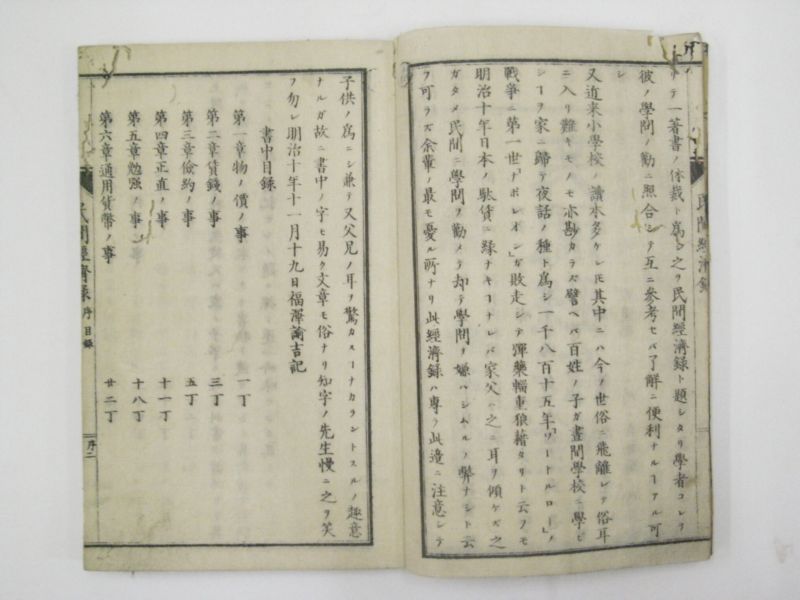 リテ一著書ノ体裁ト為シ之ヲ民間經濟録ト題シタリ學者コレヲ
彼ノ學問ノ勸ニ照合シテ互ニ參考セバ了解ニ便利ナルヿアル可
シ
又近来小學校ノ讀本多ケレ𪜈其中ニハ今ノ世俗ニ飛離レテ俗耳
ニ入リ難キモノモ亦尠カラズ譬ヘバ百姓ノ子ガ晝間學校ニ學ビ
シヿヲ家ニ歸テ夜話ノ種ト為シ一千八百十五年「ワートルロー」ノ
戰爭ニ第一世「ナポレオン」ガ敗走シテ彈藥輜重狼藉タリト云フモ
明治十年日本ノ駄賃ニ縁ナキヿナレバ家父ハ之ニ耳ヲ傾ケズ之
ガタメ民間ニ學問ヲ勸メテ却テ學問ヲ嫌ハシムルノ弊ナシト云
フ可ラズ余輩ノ最モ憂ル所ナリ此經濟録ハ專ラ此邉ニ注意シテ
民間經濟録
子供ノ為ニシ兼テ又父兄ノ耳ヲ驚カスヿナカラントスルノ趣意
ナルガ故ニ書中ノ字モ易ク文章モ俗ナリ知字ノ先生慢ニ之ヲ笑
フ勿レ明治十年十一月十九日福澤諭吉記
書中目録
第一章物ノ價ノ事 一丁
第二章賃錢ノ事 三丁
第三章儉約ノ事 五丁
第四章正直ノ事 十一丁
第五章勉強ノ事 十八丁
第六章通用貨幣ノ事 廿二丁
民間經濟録 序 目録 序二